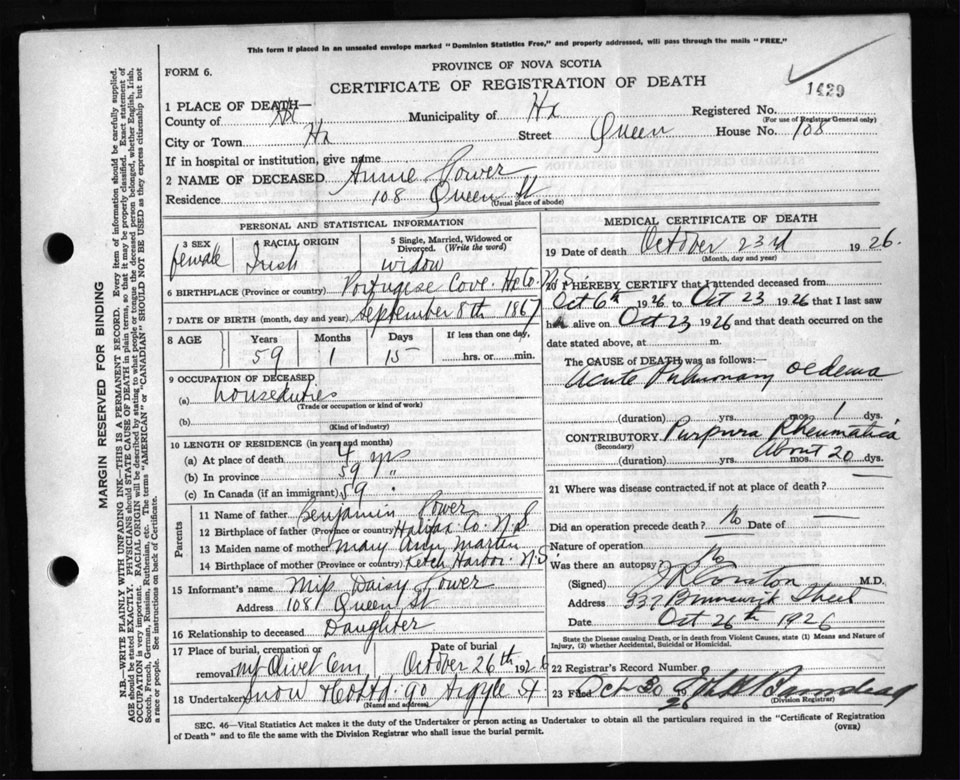 This form if placed in an unsealed envelope marked "Dominion Statistics Free," and properly addressed, will pass through the mails "FREE."
FORM 6.
PROVINCE OF NOVA SCOTIA
CERTIFICATE OF REGISTRATION OF DEATH
1429
1 PLACE OF DEATH—
County of Hx Municipality of Hx Registered No.
(For use of Registrar General only)
City or Town Hx Street Queen House No. 108
If in hospital or institution, give name
2 NAME OF DECEASED Annie Power
Residence 108 Queen St
(Usual place of abode)
PERSONAL AND STATISTICAL INFORMATION
3 SEX female
RACIAL ORIGIN Irish
5 Single, Married, Widowed or Divorced. (Write the word) widow
6 BIRTHPLACE (Province or country) Portugese Cove Hx Co. N.S.
7 DATE OF BIRTH (month, day and year) September 8th 1867
8 AGE Years 59 Months 1 Days 15 If less than one day, hrs. or min.
9 OCCUPATION OF DECEASED
(a) houseduties
(Trade or occupation or kind of work)
(b)
(Kind of industry)
10 LENGTH OF RESIDENCE (in years and months)
(a) At place of death 4 yrs
(b) In province 59 "
(c) In Canada (if an immigrant) 59
Parents
11 Name of father Benjamin Power
12 Birthplace of father (Province or country) Halifax Co. N.S
13 Maiden name of mother Mary Ann Martin
14 Birthplace of mother (Province or country) Ketch Harbor N.S
15 Informant's name Miss Daisy Power
Address 108 Queen St
16 Relationship to deceased Daughter
17 Place of burial, cremation or removal Mt Olivet Cem
Date of burial October 26th 1926
18 Undertaker Snow & Co Ltd. 90 Argyle St
(Name and address)
MEDICAL CERTIFICATE OF DEATH
19 Date of death October 23rd 1926.
(Month, day and year)
20 I HEREBY CERTIFY that I attended deceased from
Oct 6th 1926 to Oct 23 1926 that I last saw
her alive on Oct 23 1926 and that death occurred on
date stated above, at m.
The CAUSE OF DEATH was as follows:
Acute Pulmonary oedema
(duration) yrs. mos. 1 dys.
CONTRIBUTORY Purpura Rheumatica
(Secondary)
About 20
(duration) yrs. mos. dys.
21 Where was disease contracted, if not at place of death? —
Did an operation precede death? No Date of —
Nature of operation
Was there an autopsy? No
(Signed) M.D.
Address 337 Brunswick Street
Date Oct 26th 1926
State the Disease causing Death, or in death from Violent Causes, state (1) Means and Nature of Injury, (2) whether Accidental, Suicidal or Homicidal.
22 Registrar's Record Number
23 Filed Oct 30 1926 Barnstead
(Division Registrar)
SEC. 46—Vital Statistics Act makes it the duty of the Undertaker or person acting as Undertaker to obtain all the particulars required in the "Certificate of Registration
of Death" and to file the same with the Division Registrar who shall issue the burial permit.
(OVER)
MARGIN RESERVED FOR BINDING
N.B.—WRITE PLAINLY WITH UNFADING INK—THIS IS A PERMANENT RECORD. Every item of information should be carefully supplied.
AGE should be stated EXACTLY. PHYSICIANS should STATE CAUSE OF DEATH in plain terms, so that it may be properly classified. Exact statement of
OCCUPATION is very important. RACIAL ORIGIN will be described by stating to what people or tongue the deceased person belonged, whether English, Irish,
Scotch, French, German, Russian, Ruthenian, etc. The terms "AMERICAN" or "CANADIAN" SHOULD NOT BE USED as they express citizenship but not
a race or people. See instructions on back of Certificate.